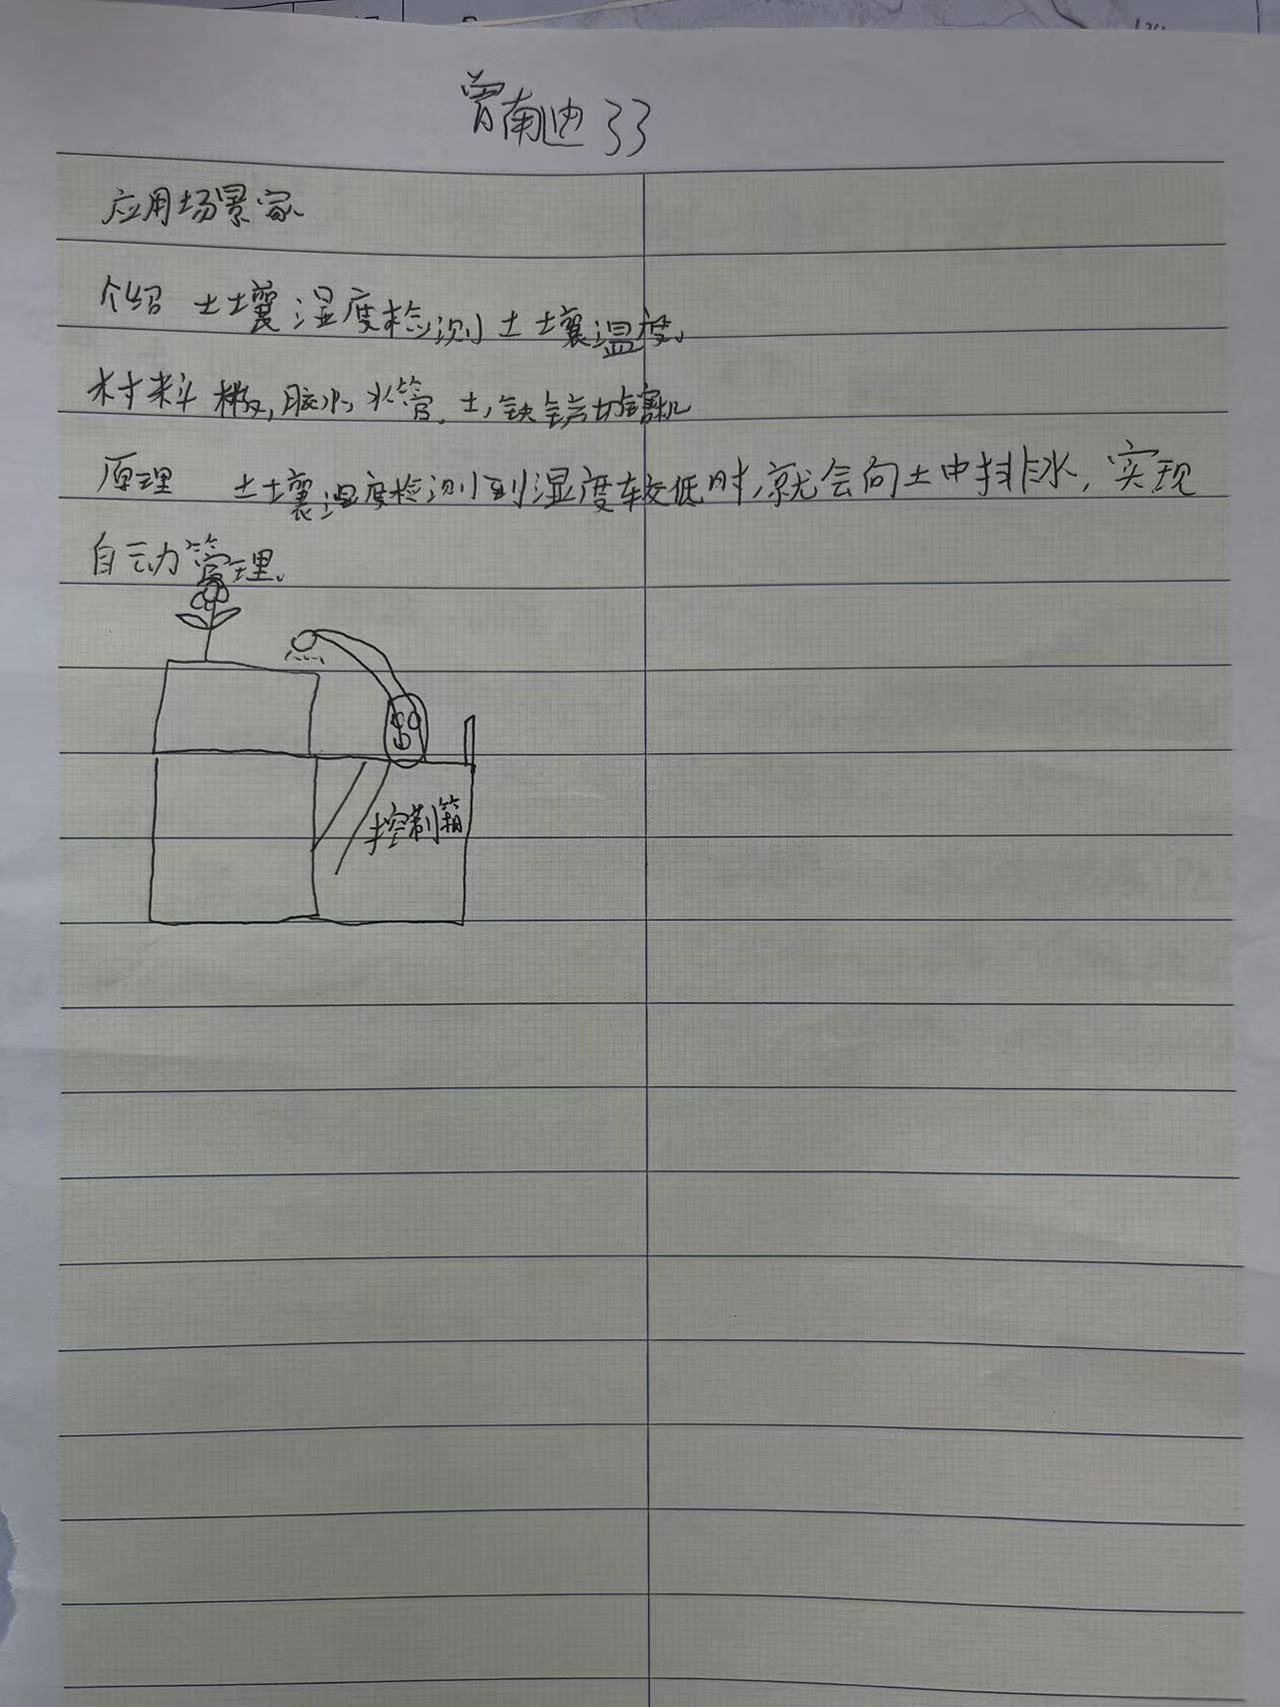 曾南迪 33
应用场景家
介绍 土壤湿度检测土壤温度。
材料 木板,胶水,水管,土,铁铲切割机
原理 土壤湿度检测到湿度较低时,就会向土中排水,实现
自动管理。
控制箱